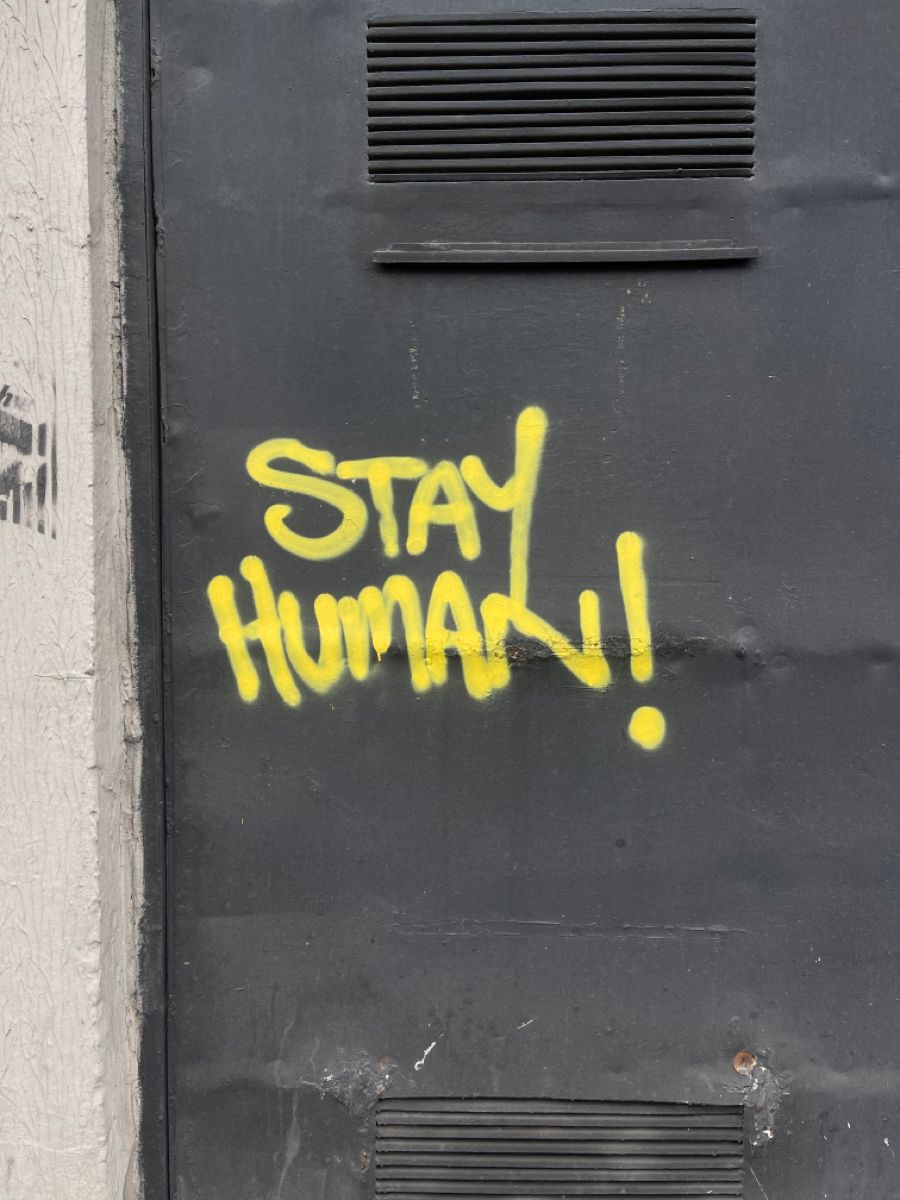 STAY
HUMAN!